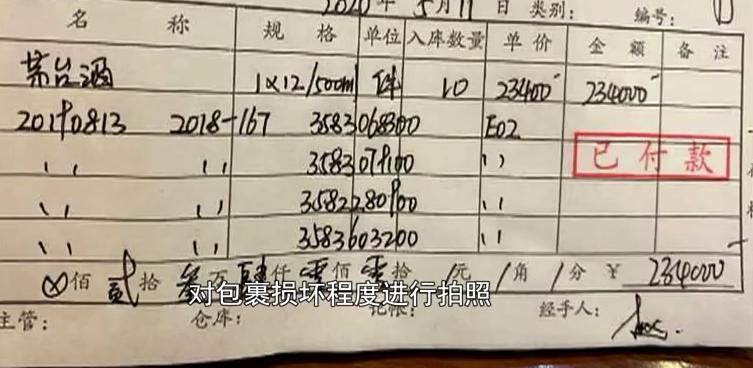 2020年5月11日 类别： 编号：
名称 规格 单位 入库数量 单价 金额 备注
茅台酒 1×12/500ml 件 10 23400 234000
20190813 2018-167 3583068300 E02
〃 〃 3583079100 〃
已付款
〃 〃 3582280900 〃
〃 〃 3583603200 〃
⊗佰贰拾叁万肆仟零佰零拾/元/角/分 ¥ 234000
对包裹损坏程度进行拍照
主管： 仓库： 记帐： 经手人：